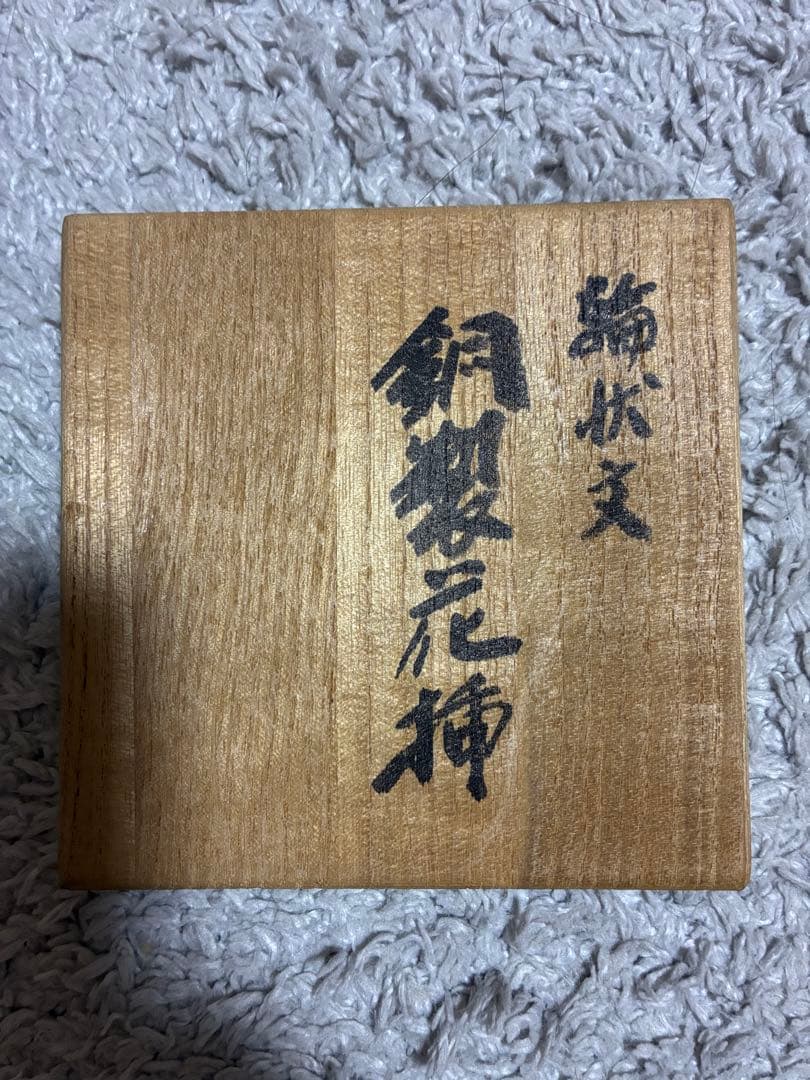 輪状文
銅製花挿